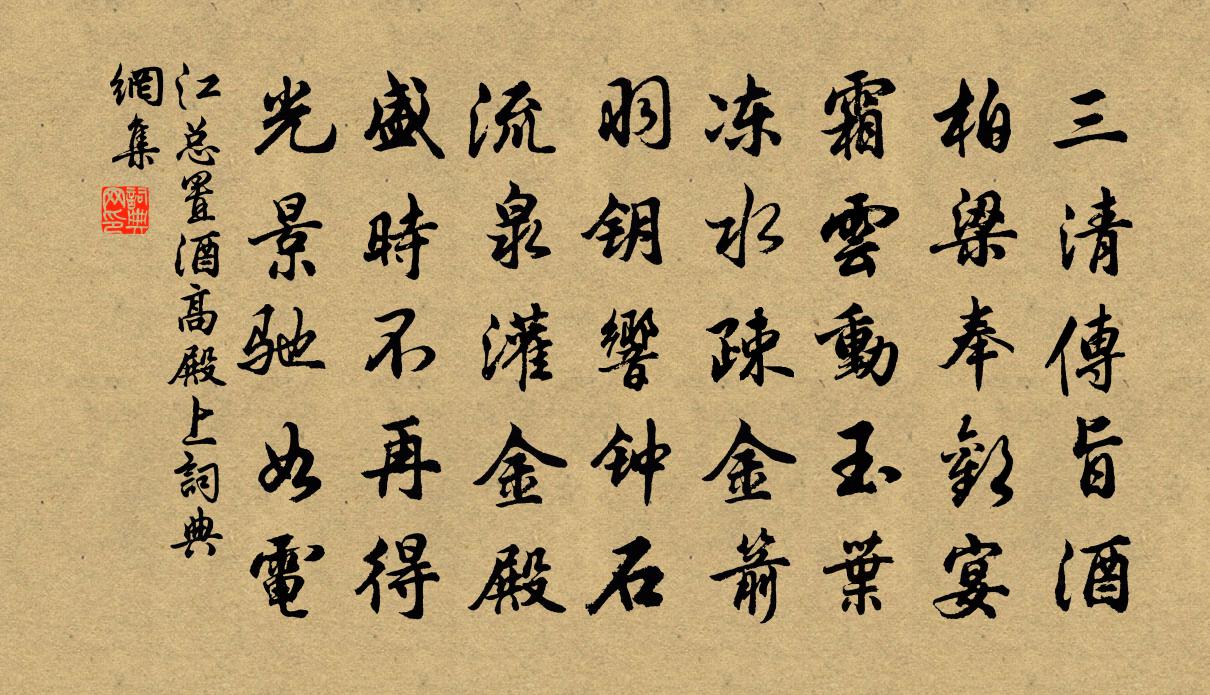 三清傳旨酒
柏梁奉歡宴
霜雲動玉葉
冻水疎金箭
羽钥響钟石
流泉灌金殿
盛時不再得
光景驰如電
江总置酒高殿上詞典
網集
詞典
网印